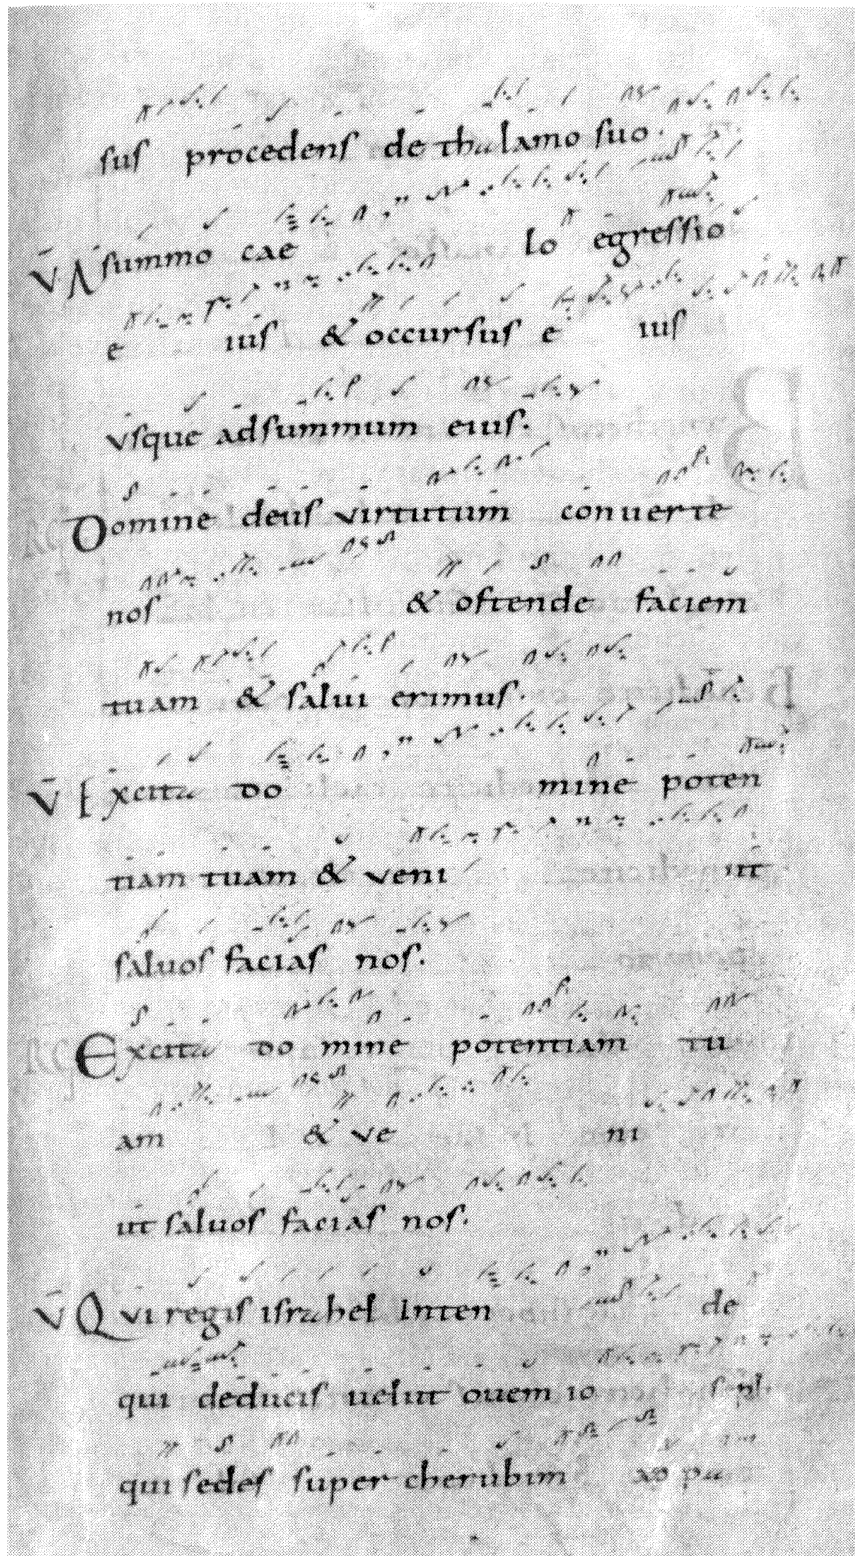 sus procedens de thalamo suo.
V A summo cae lo egressio
e ius & occursus e ius
usque ad summum eius.
Domine deus virtutum converte
nos & ostende faciem
tuam & salui erimus.
V Excita do mine poten
tiam tuam & veni ut
saluos facias nos.
Excita do mine potentiam tu
am & ve ni
ut saluos facias nos.
V Qui regis israhel Inten de
qui deducis uelut ouem io seph
qui sedes super cherubim